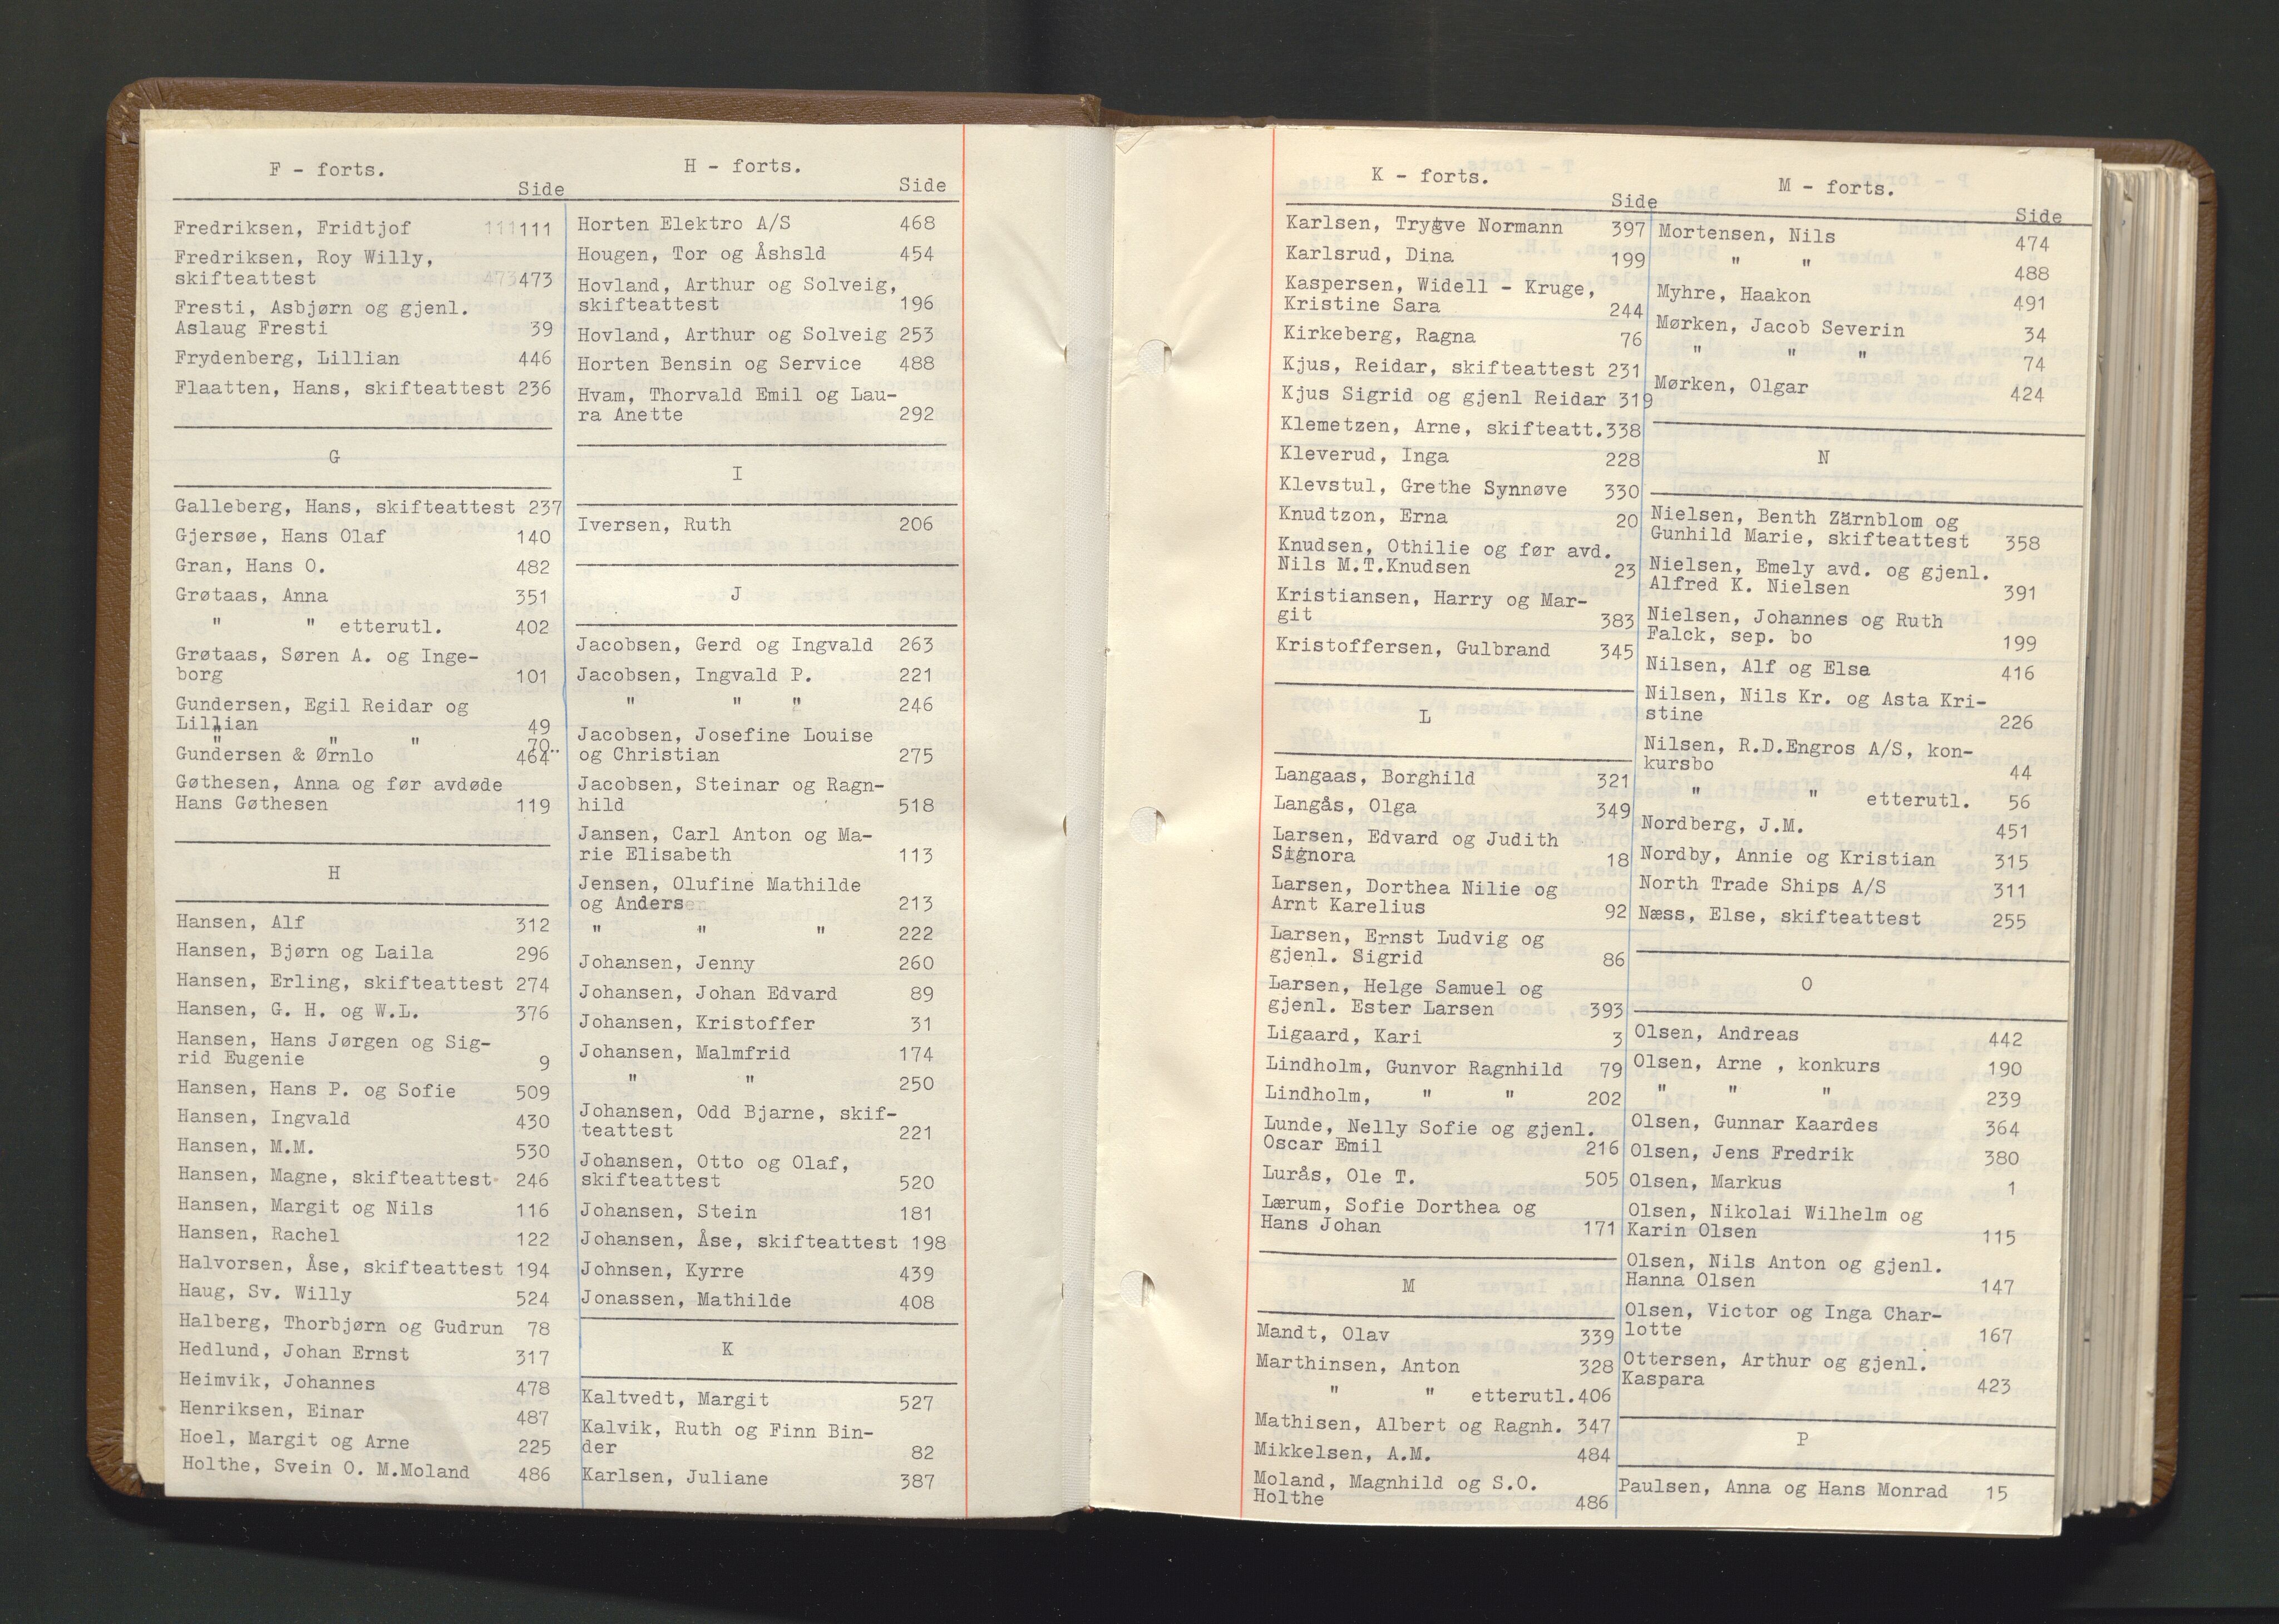 F - forts.
Side
Fredriksen, Fridtjof 111
Fredriksen, Roy Willy,
skifteattest 473
Fresti, Asbjørn og gjenl.
Aslaug Fresti 39
Frydenberg, Lillian 446
Flaatten, Hans, skifteattest 236
G
Galleberg, Hans, skifteattest 237
Gjersøe, Hans Olaf 140
Gran, Hans O. 482
Grøtaas, Anna 351
" " etterutl. 402
Grøtaas, Søren A. og Inge-
borg 101
Gundersen, Egil Reidar og
Lillian 49
" " " 70
Gundersen & Ørnlo 464
Gøthesen, Anna og før avdøde
Hans Gøthesen 119
H
Hansen, Alf 312
Hansen, Bjørn og Laila 296
Hansen, Erling, skifteattest 274
Hansen, G. H. og W.L. 376
Hansen, Hans Jørgen og Sig-
rid Eugenie 9
Hansen, Hans P. og Sofie 509
Hansen, Ingvald 430
Hansen, M.M. 530
Hansen, Magne, skifteattest 246
Hansen, Margit og Nils 116
Hansen, Rachel 122
Halvorsen, Åse, skifteattest 194
Haug, Sv. Willy 524
Halberg, Thorbjørn og Gudrun 78
Hedlund, Johan Ernst 317
Heimvik, Johannes 478
Henriksen, Einar 487
Hoel, Margit og Arne 225
Holthe, Svein O. M.Moland 486
H - forts.
Side
Horten Elektro A/S 468
Hougen, Tor og Åshsld 454
Hovland, Arthur og Solveig,
skifteattest 196
Hovland, Arthur og Solveig 253
Horten Bensin og Service 488
Hvam, Thorvald Emil og Lau-
ra Anette 292
I
Iversen, Ruth 206
J
Jacobsen, Gerd og Ingvald 263
Jacobsen, Ingvald P. 221
" " " 246
Jacobsen, Josefine Louise
og Christian 275
Jacobsen, Steinar og Ragn-
hild 518
Jansen, Carl Anton og Ma-
rie Elisabeth 113
Jensen, Olufine Mathilde
og Anders 213
" " " 222
Johansen, Jenny 260
Johansen, Johan Edvard 89
Johansen, Kristoffer 31
Johansen, Malmfrid 174
" " 250
Johansen, Odd Bjarne, skif-
teattest 221
Johansen, Otto og Olaf,
skifteattest 520
Johansen, Stein 181
Johansen, Åse, skifteattest 198
Johnsen, Kyrre 439
Jonassen, Mathilde 408
K
Kaltvedt, Margit 527
Kalvik, Ruth og Finn Bin-
der 82
Karlsen, Juliane 387
K - forts.
Side
Karlsen, Trygve Normann 397
Karlsrud, Dina 199
Kaspersen, Widell - Kruge,
Kristine Sara 244
Kirkeberg, Ragna 76
Kjus, Reidar, skifteattest 231
Kjus Sigrid og gjenl Reidar 319
Klemetzen, Arne, skifteatt. 338
Kleverud, Inga 228
Klevstul, Grethe Synnøve 330
Knudtzon, Erna 20
Knudsen, Othilie og før avd.
Nils M.T.Knudsen 23
Kristiansen, Harry og Mar-
git 383
Kristoffersen, Gulbrand 345
L
Langaas, Borghild 321
Langås, Olga 349
Larsen, Edvard og Judith
Signora 18
Larsen, Dorthea Nilie og
Arnt Karelius 92
Larsen, Ernst Ludvig og
gjenl. Sigrid 86
Larsen, Helge Samuel og
gjenl. Ester Larsen 393
Ligaard, Kari 3
Lindholm, Gunvor Ragnhild 79
Lindholm, " " 202
Lunde, Nelly Sofie og gjenl.
Oscar Emil 216
Lurås, Ole T. 505
Lærum, Sofie Dorthea og
Hans Johan 171
M
Mandt, Olav 339
Marthinsen, Anton 328
" " etterutl. 406
Mathisen, Albert og Ragnh. 347
Mikkelsen, A.M. 484
Moland, Magnhild og S.O.
Holthe 486
M - forts.
Side
Mortensen, Nils 474
" " 488
Myhre, Haakon 491
Mørken, Jacob Severin 34
" " " 74
Mørken, Olgar 424
N
Nielsen, Benth Zärnblom og
Gunhild Marie, skifteattest 358
Nielsen, Emely avd. og gjenl.
Alfred K. Nielsen 391
Nielsen, Johannes og Ruth
Falck, sep. bo 199
Nilsen, Alf og Elsa 416
Nilsen, Nils Kr. og Asta Kri-
stine 226
Nilsen, R.D.Engros A/S, kon-
kursbo 44
" " etterutl. 56
Nordberg, J.M. 451
Nordby, Annie og Kristian 315
North Trade Ships A/S 311
Næss, Else, skifteattest 255
O
Olsen, Andreas 442
Olsen, Arne , konkurs 190
" " " 239
Olsen, Gunnar Kaardes 364
Olsen, Jens Fredrik 380
Olsen, Markus 1
Olsen, Nikolai Wilhelm og
Karin Olsen 115
Olsen, Nils Anton og gjenl.
Hanna Olsen 147
Olsen, Victor og Inga Char-
lotte 167
Ottersen, Arthur og gjenl.
Kaspara 423
P
Paulsen, Anna og Hans Monrad 15